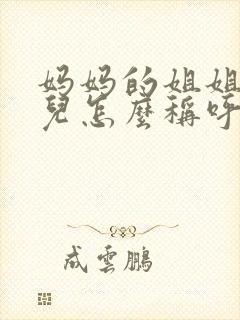 妈妈的姐姐
兒怎麼稱呼
成雲鵬